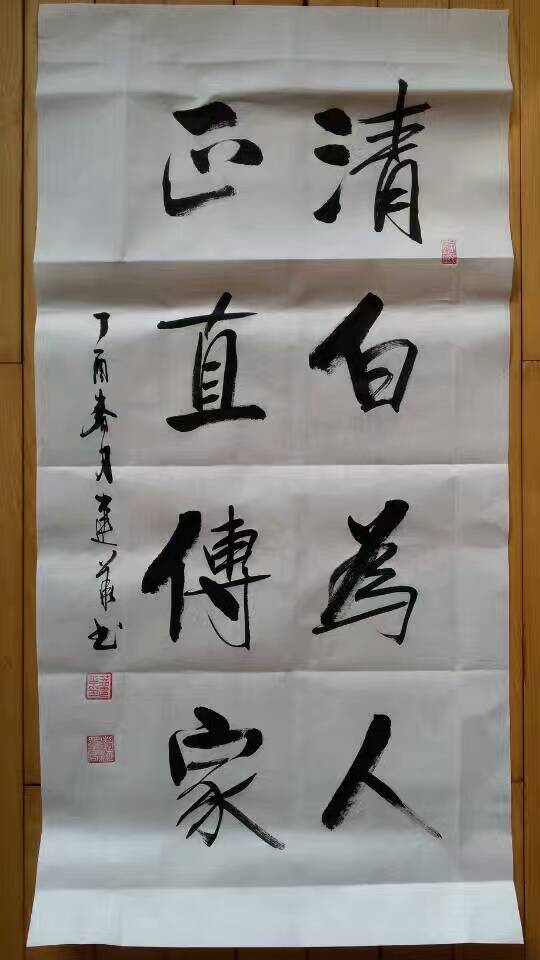 清白為人
正直傳家
丁酉春月建華书